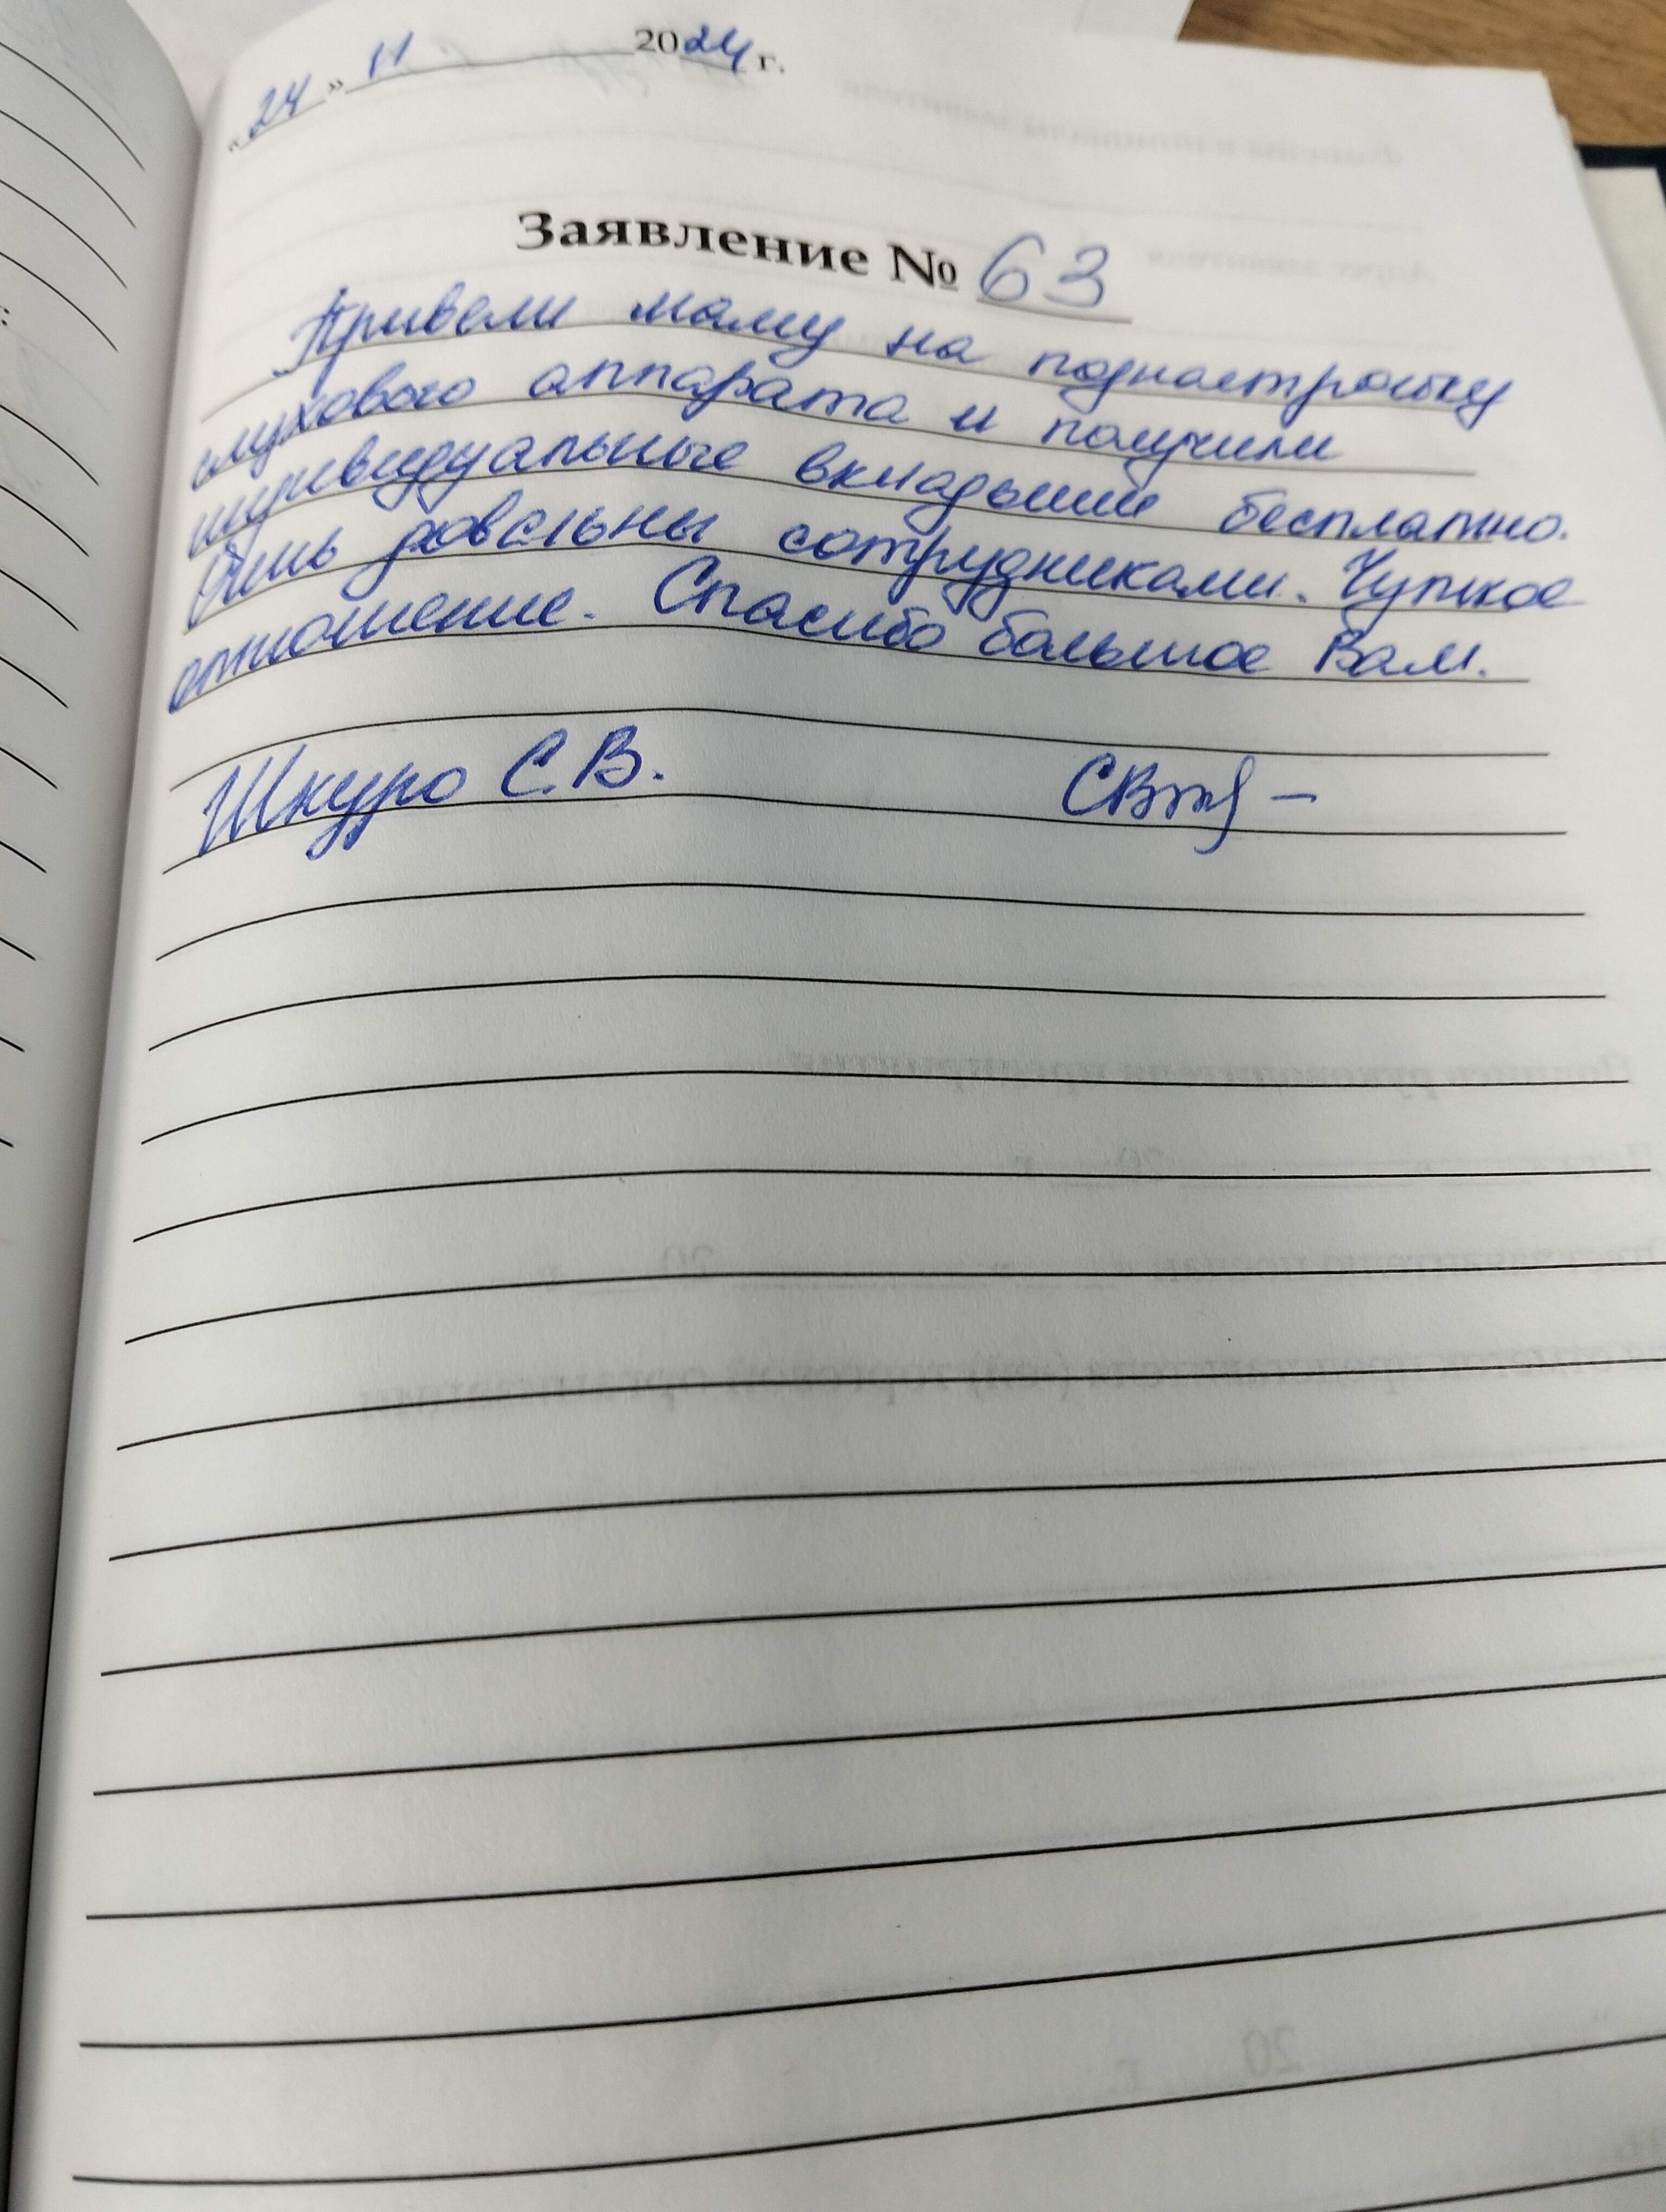 «24» 11 2024 г.
Заявление № 63
Привели маму на поднастройку
слухового аппарата и получили
индивидуальные вкладыши бесплатно.
Очень довольны сотрудниками. Чуткое
отношение. Спасибо большое Вам.
Шкуро С.В.